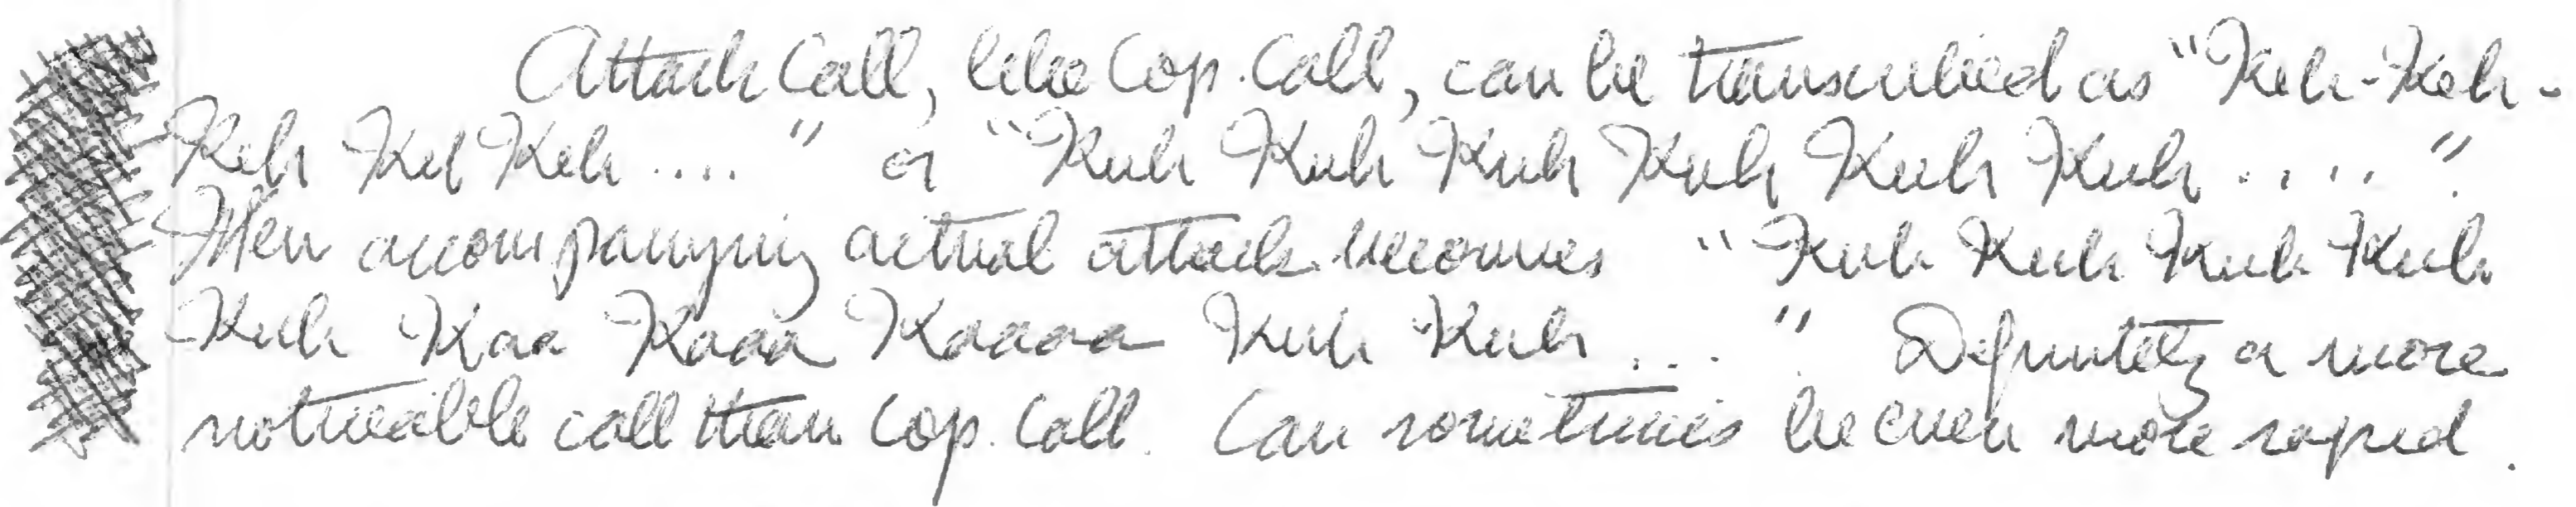 Attack Call, like Cop. Call, can be transcribed as "Keh-Keh-
Keh Keh Keh ...." or "Kuh Kuh Kuh Kuh Kuh Kuh ....."
When accompanying actual attack becomes "Kuh Kuh Kuh Kuh
Kuh Kaa Kaaa Kaaaa Kuh Kuh ...". Definitely a more
noticeable call than Cop. Call. Can sometimes be even more rapid.